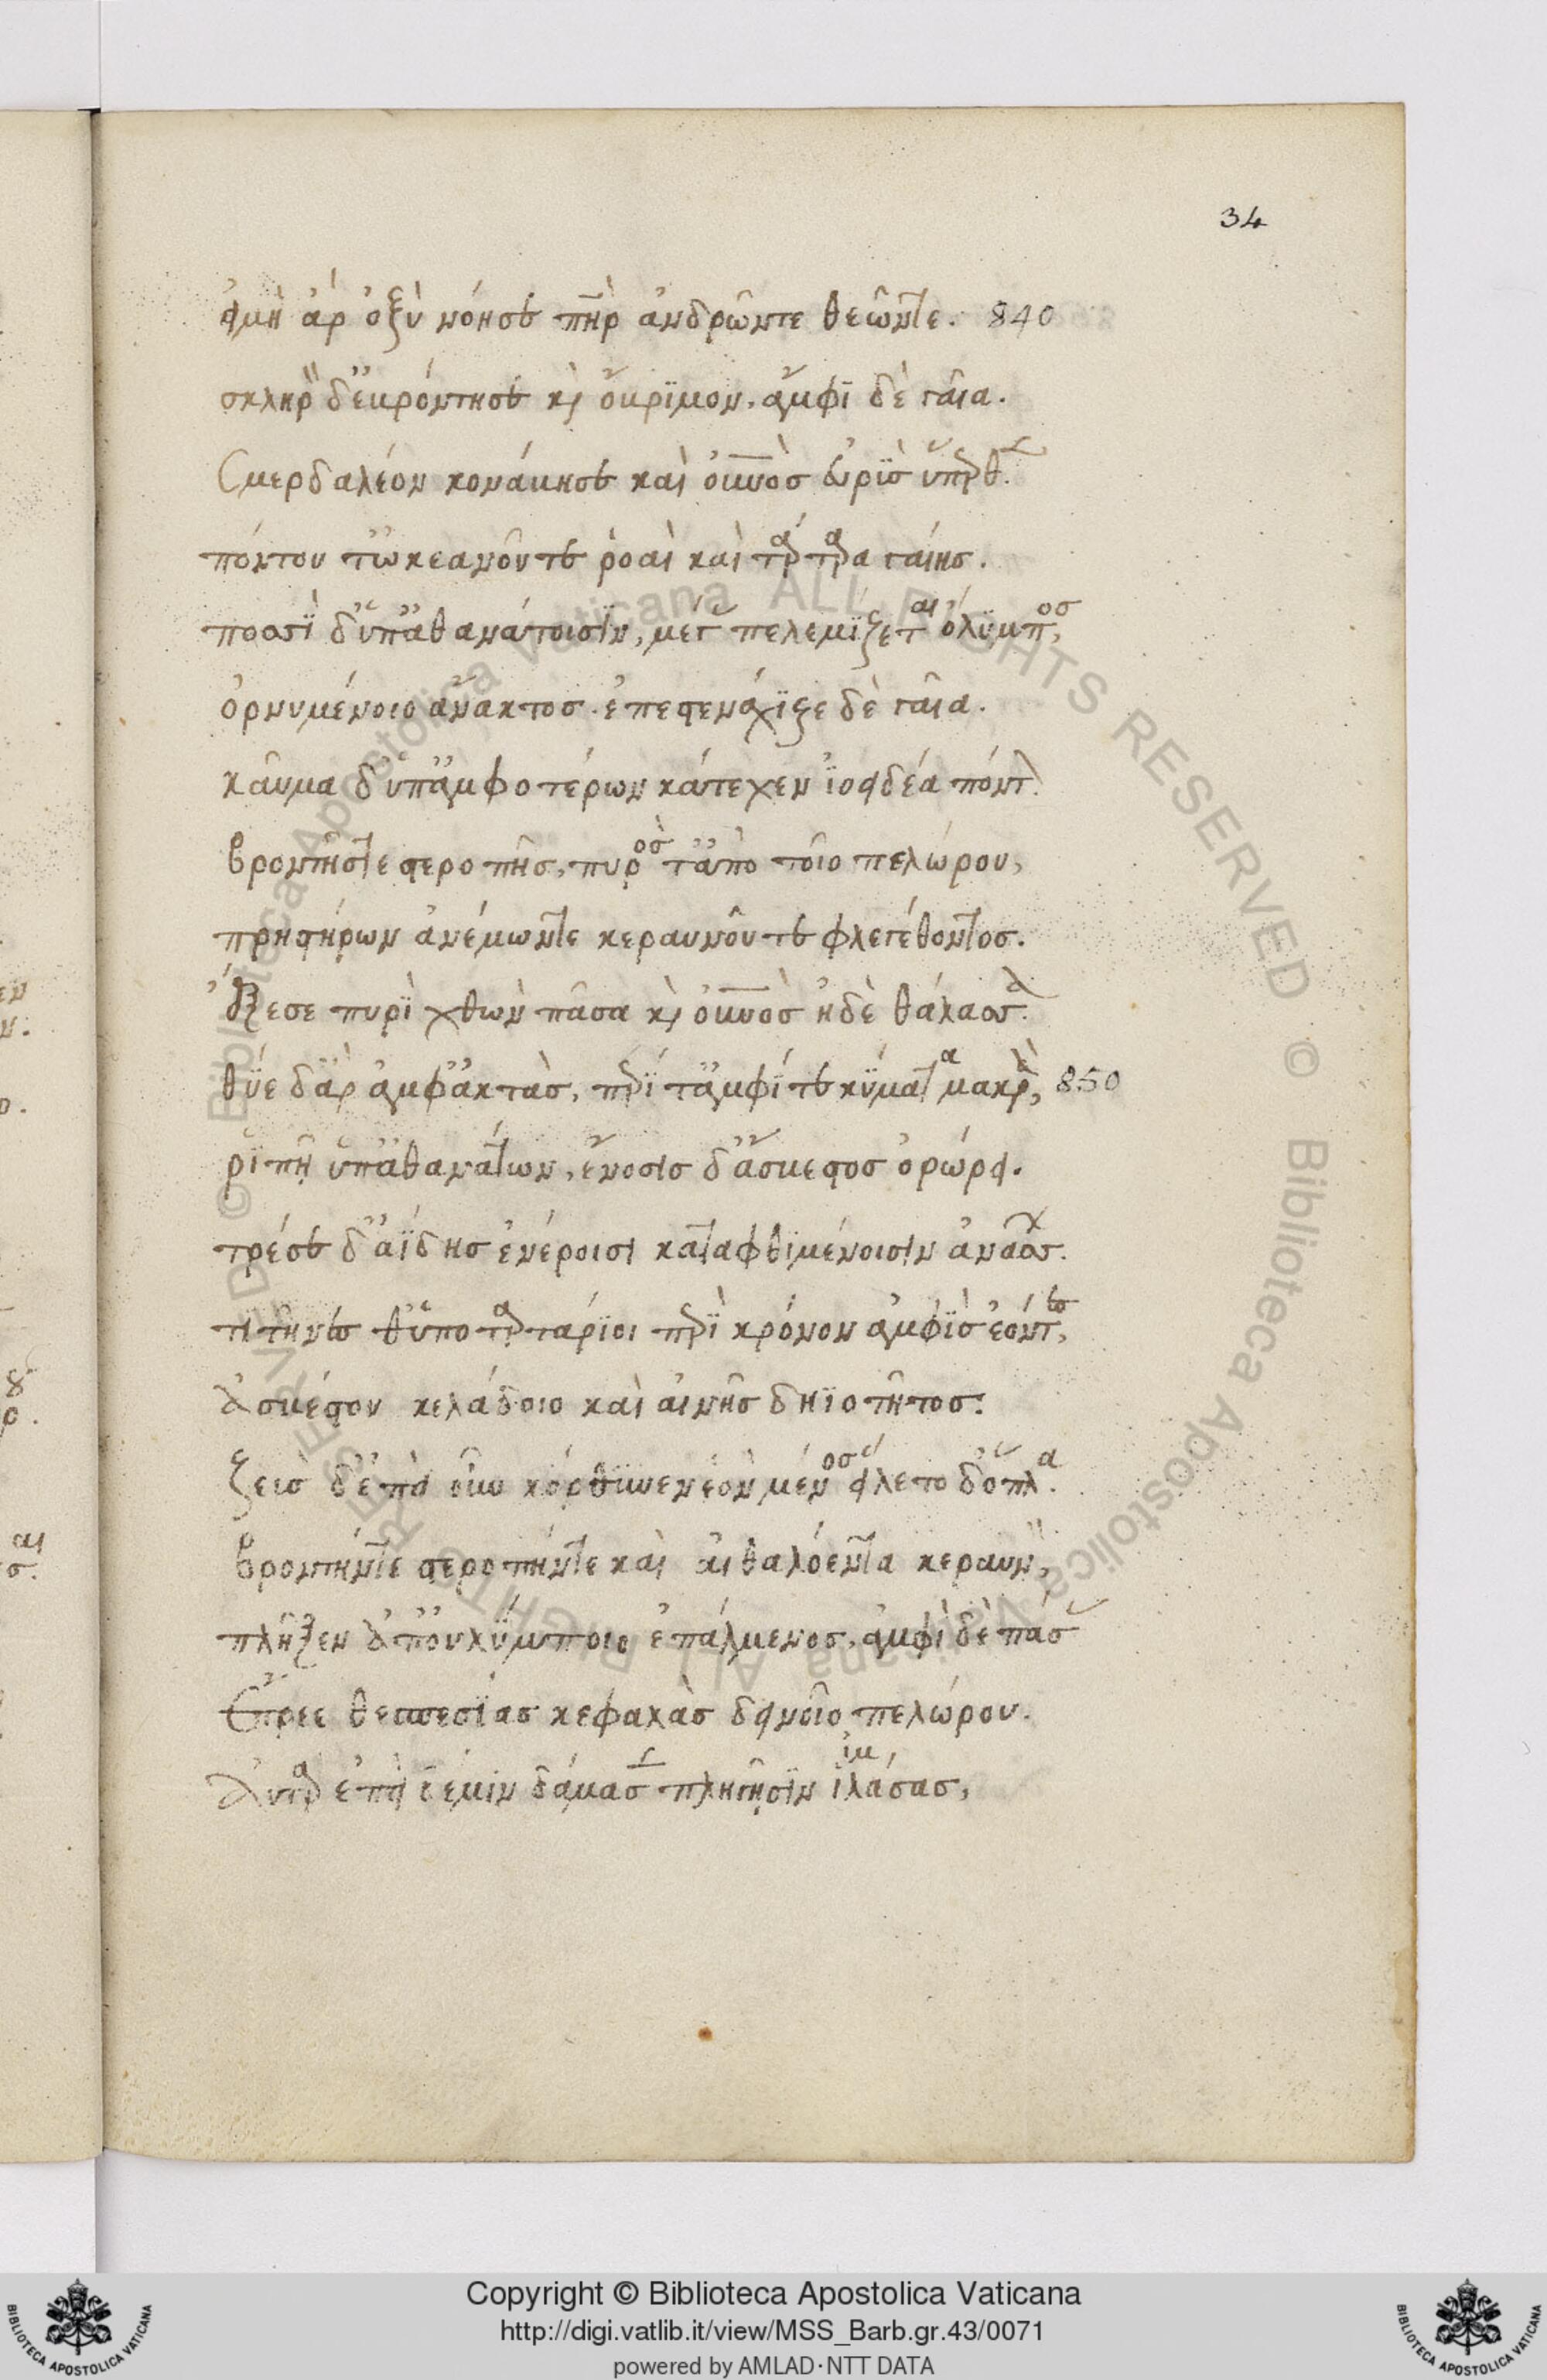 34
εἰμὴ ἄρ ὀξὺ νόησε πηρ ἀνδρῶντε θεῶντε. 840
σκληρὸν δ' ἐβρόντησε καὶ ὄβριμον. ἀμφὶ δὲ γαῖα.
Σμερδαλέον κονάβησε καὶ οὐνος εὐρὺς ὕπερθεν.
πόντου τ' ὠκεανοῦ τε ῥοαὶ καὶ τάρταρα γαίης.
ποσσὶ δ' ὕπ' ἀθανάτοισιν, μέγας πελεμίζεται ὄλυμπος,
ὀρνυμένοιο ἄνακτος. ἐπεστενάχιζε δὲ γαῖα.
καῦμα δ' ὑπ' ἀμφοτέρων κάτεχεν ἰοειδέα πόντον.
βροντῆς τε στεροπῆς, πυρὸς τ' ἀπὸ τοῖο πελώρου,
πρηστήρων ἀνέμων τε κεραυνοῦ τε φλεγέθοντος.
ἔξεσε πυρὶ χθὼν πᾶσα καὶ οὐνος ἠδὲ θάλασσα.
θύε δ' ἂρ ἀμφ' ἀκτὰς, περί τ' ἀμφί τε κύματα μακρὰ, 850
ῥιπῇ ὕπ' ἀθανάτων, ἔνοσις δ' ἄσβεστος ὀρώρει.
τρέσε δ' ἀΐδης ἐνέροισι καταφθιμένοισιν ἀνάσσων.
τιτῆνες θ' ὑποταρτάριοι περὶ κρόνον ἀμφὶς ἐόντες,
Ἀσβέστου κελάδοιο καὶ αἰνῆς δηϊοτῆτος:
ζεὺς δ' ἐπεὶ οὖν κόρθυνεν ἑὸν μένος εἵλετο δ' ὅπλα.
βροντήν τε στεροπήν τε καὶ αἰθαλόεντα κεραυνὸν,
πλῆξεν ἀπ' οὐλύμποιο ἐπάλμενος. ἀμφὶ δὲ πάσας
Ἔπρεε θεσπεσίας κεφαλὰς δεινοῖο πελώρου.
Αὐτὰρ ἐπεὶ δέμιν δάμασεν πληγῇσιν ἱμάσας,
Copyright © Biblioteca Apostolica Vaticana
http://digi.vatlib.it/view/MSS_Barb.gr.43/0071
powered by AMLAD·NTT DATA